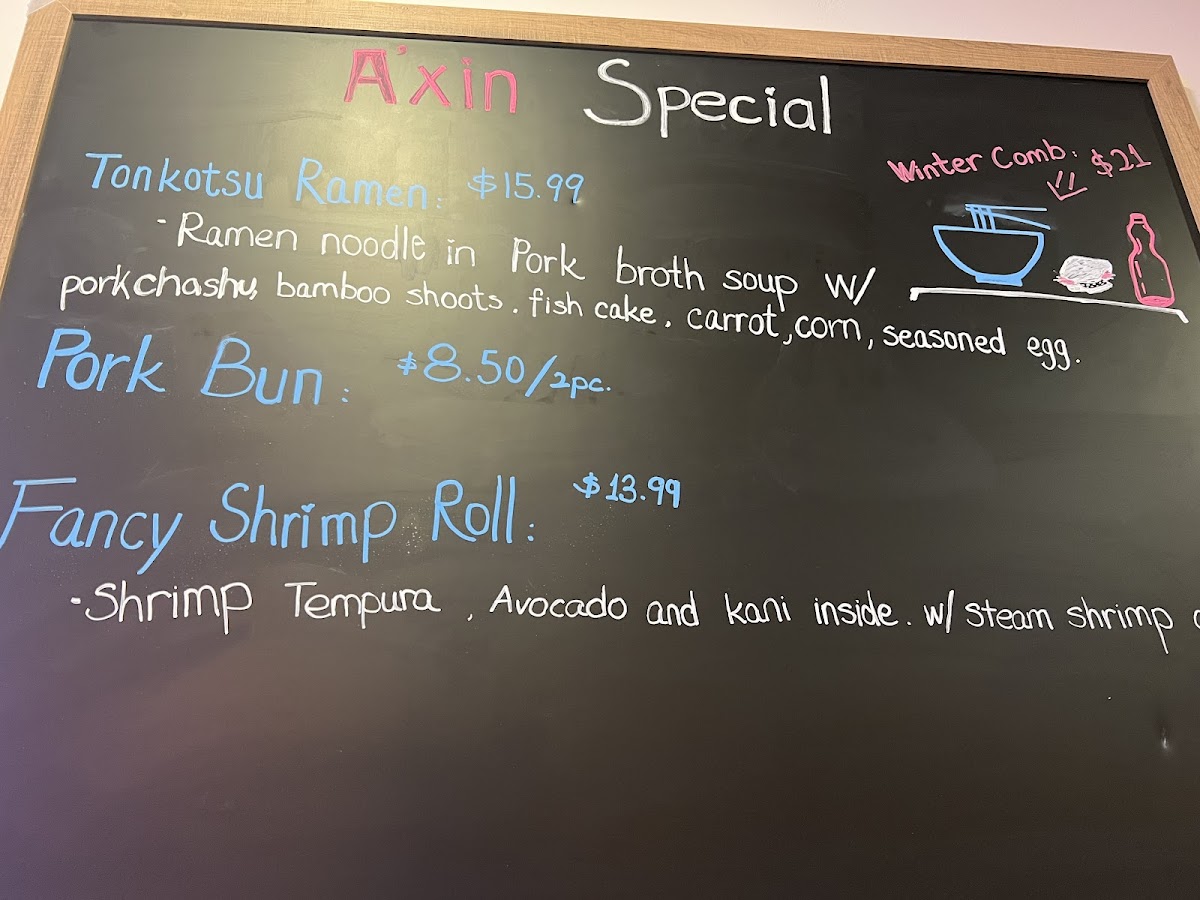 A'xin Special
Winter Comb: $21
Tonkotsu Ramen: $15.99
· Ramen noodle in Pork broth soup w/
pork chashu, bamboo shoots. fish cake. carrot, corn, seasoned egg.
Pork Bun: $8.50/2pc.
Fancy Shrimp Roll: $13.99
· Shrimp Tempura, Avocado and kani inside. w/ steam shrimp